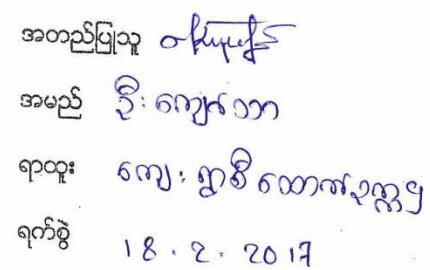 အတည်ပြုသူ
အမည် ဦးကျော်ဘာ
ရာထူး ကျေး ရွာစီ ထောက်ဥက္ကဌ
ရက်စွဲ 18.2.2017